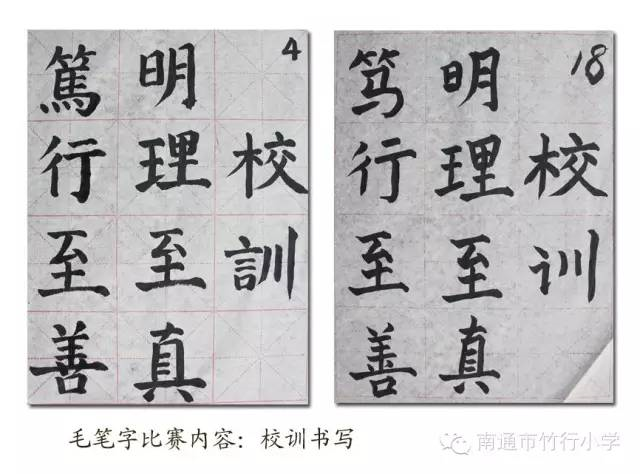 4
校訓
明理至真
篤行至善
18
校训
明理至真
笃行至善
毛笔字比赛内容：校训书写
南通市竹行小学